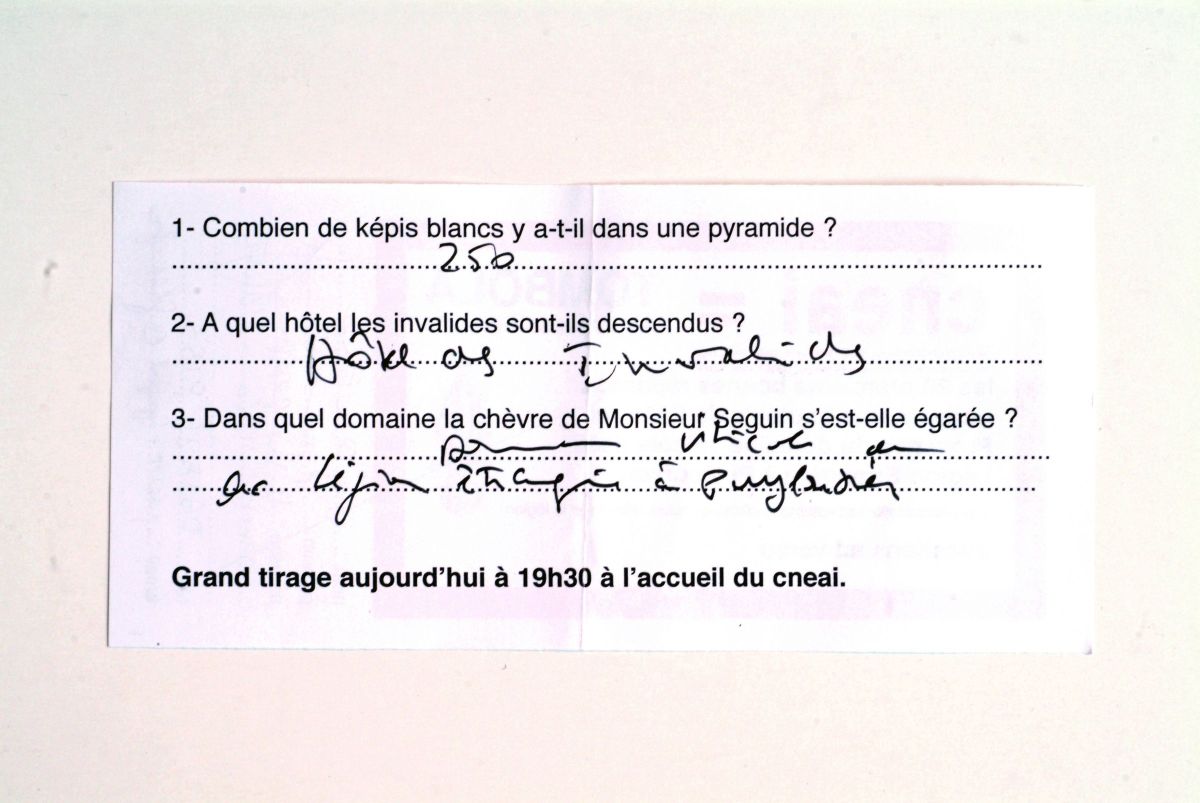 1- Combien de képis blancs y a-t-il dans une pyramide ?
250
2- A quel hôtel les invalides sont-ils descendus ?
Hôtel des Invalides
3- Dans quel domaine la chèvre de Monsieur Seguin s'est-elle égarée ?
la légion étrangère à Puyloubier
Grand tirage aujourd'hui à 19h30 à l'accueil du cneai.